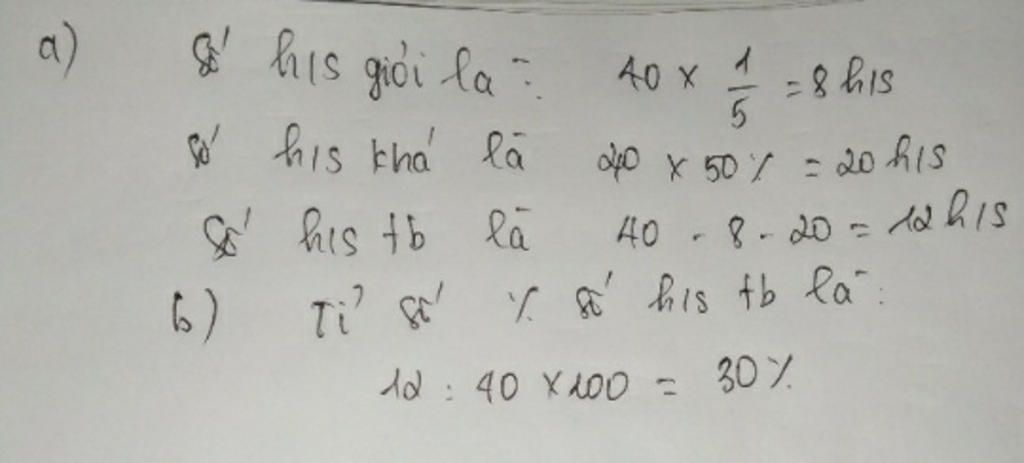 a) Số h/s giỏi là: 40 x 1/5 = 8 h/s
số h/s khá là 40 x 50% = 20 h/s
Số h/s tb là 40 - 8 - 20 = 12 h/s
b) Tỉ số % số h/s tb là:
12 : 40 x 100 = 30%